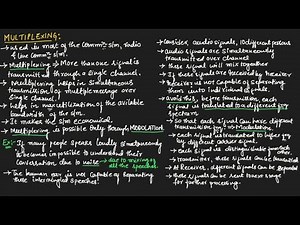 MULTIPLEXING:
→ used in most of the commn. s/m, radio
& line commn. s/m.
→ Multiplexing → More than one signal is
transmitted through a single channel.
→ Multiplexing helps in simultaneous
transmission of multiple message over
single channel.
→ helps in maximization of the available
bandwidth of the s/m.
→ It makes the s/m economical.
→ Multiplexing is possible only through MODULATION.
Ex:→ If many people speak loudly simultaneously
it becomes impossible to understand their
conversation due to noise → due to mixing of
all the speeches
→ The human ear is not capable of separating
these intermingled speeches.
→ Consider audio signals, 10 different persons
→ Audio signals are simultaneously
transmitted over channel
→ these signal will mix together
→ If these signals are received by receiver
→ Receiver is not capable of separating
them into individual signals.
→ Avoid this, before transmission, each
signal is translated to a different
spectrum
→ So that each signal can have different
→ Modulation
→ Each signal is translated to higher
by different carrier signal.
→ each signal is distinguishable from each
other.
→ transmitter, these signals can be transmitted
→ At Receiver, different signals can be separated
→ these signals can be sent to next stage
for further processing.